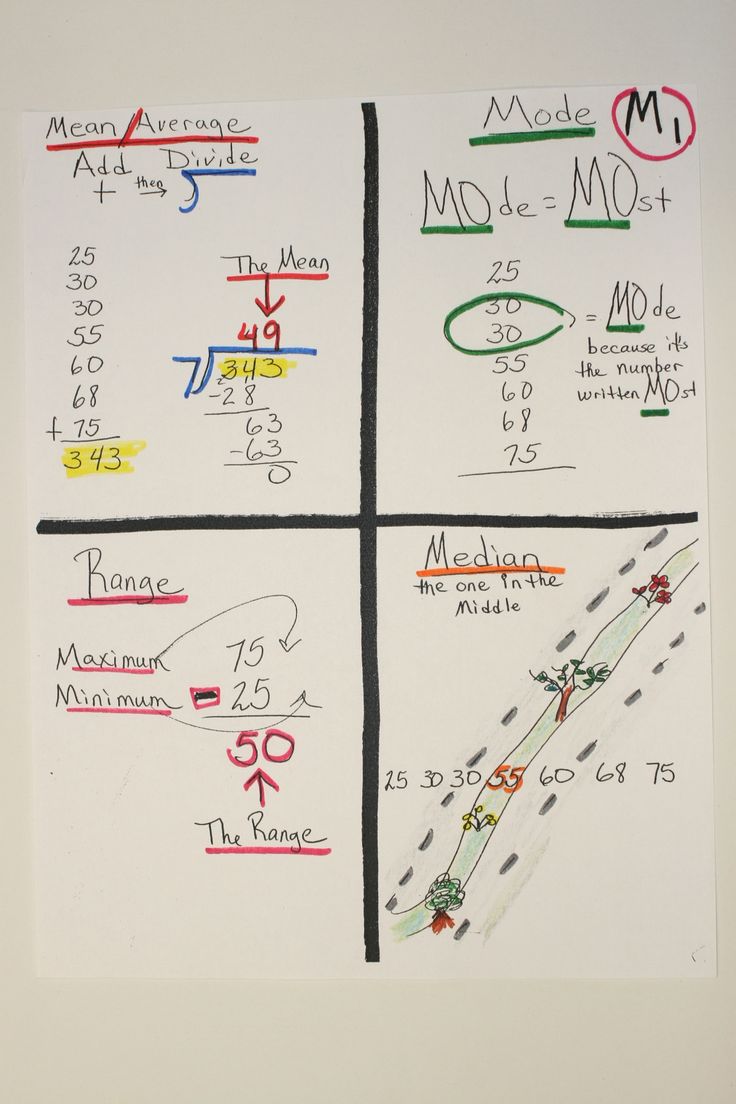 Mean/Average
Add Divide
+ then →
25
30
30
55
60
68
+ 75
343
The Mean
49
7 343
-28
63
-63
0
Mode M1
MOde = MOst
25
30
30
55
60
68
75
= MOde
because it's
the number
written MOst
Range
Maximum 75
Minimum - 25
50
The Range
Median
the one in the
Middle
25 30 30 55 60 68 75